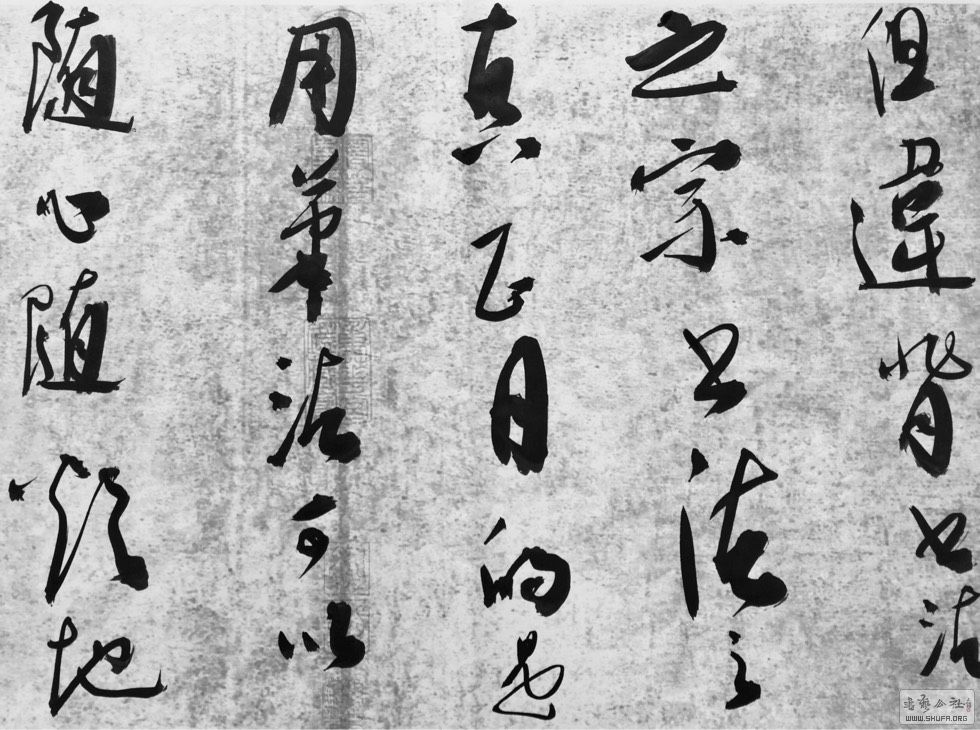 但違背书法
之宗书法之
真正目的是
用筆法可以
随心随欲地
書藝公社
WWW.SHUFA.ORG